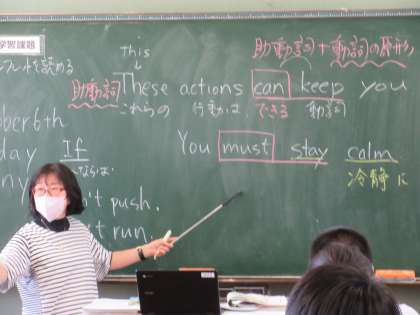 学習課題
this
助動詞+動詞の原形
を読める
助動詞 These actions can keep you
これらの 行動は、できる 動詞
ber 6th
You must stay calm
day If
冷静に
ならば
ny
't push.
't run.